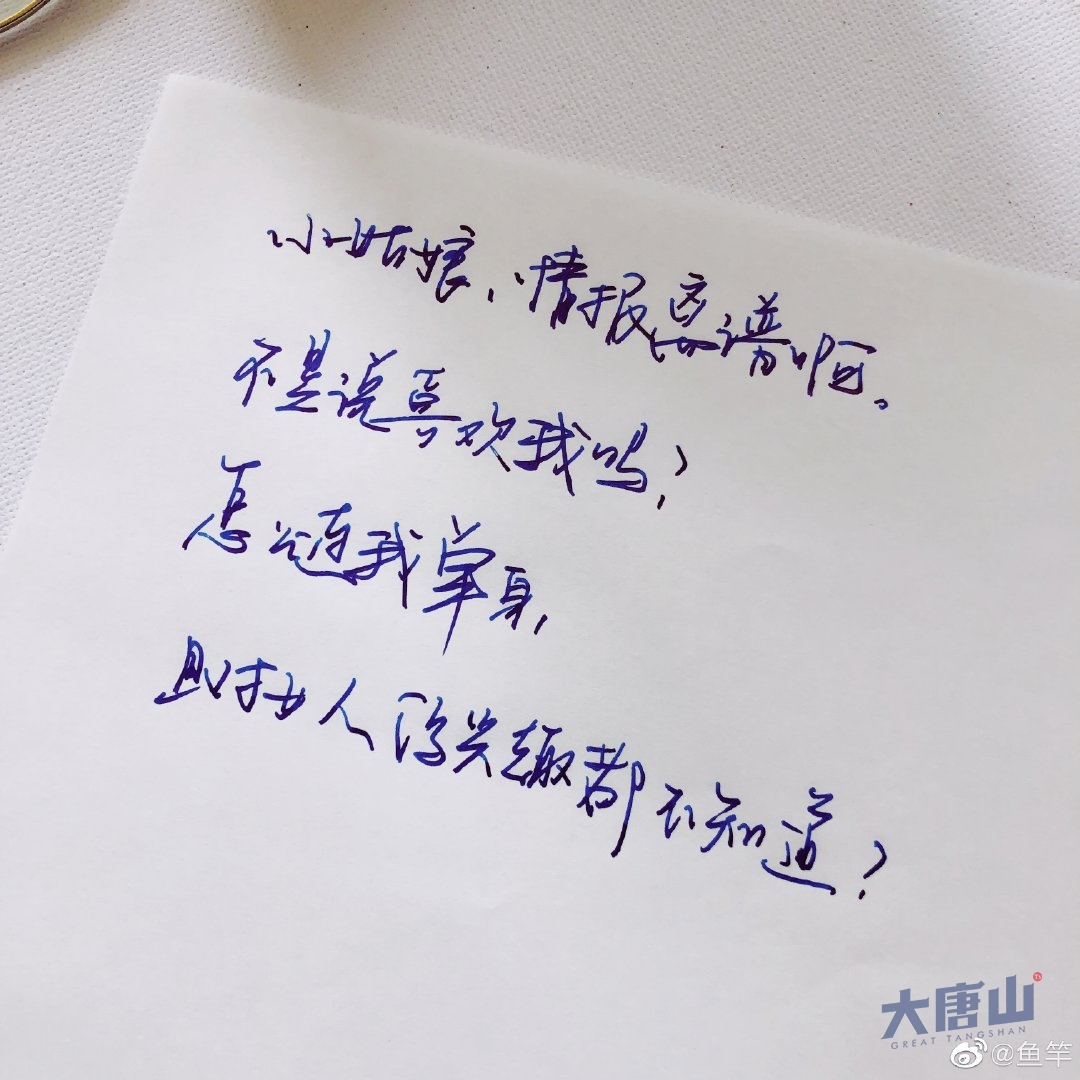 小姑娘，情报离谱啊。
不是说喜欢我吗？
怎么连我单身，
且对女人没兴趣都不知道？
大唐山
GREAT TANGSHAN
@鱼竿